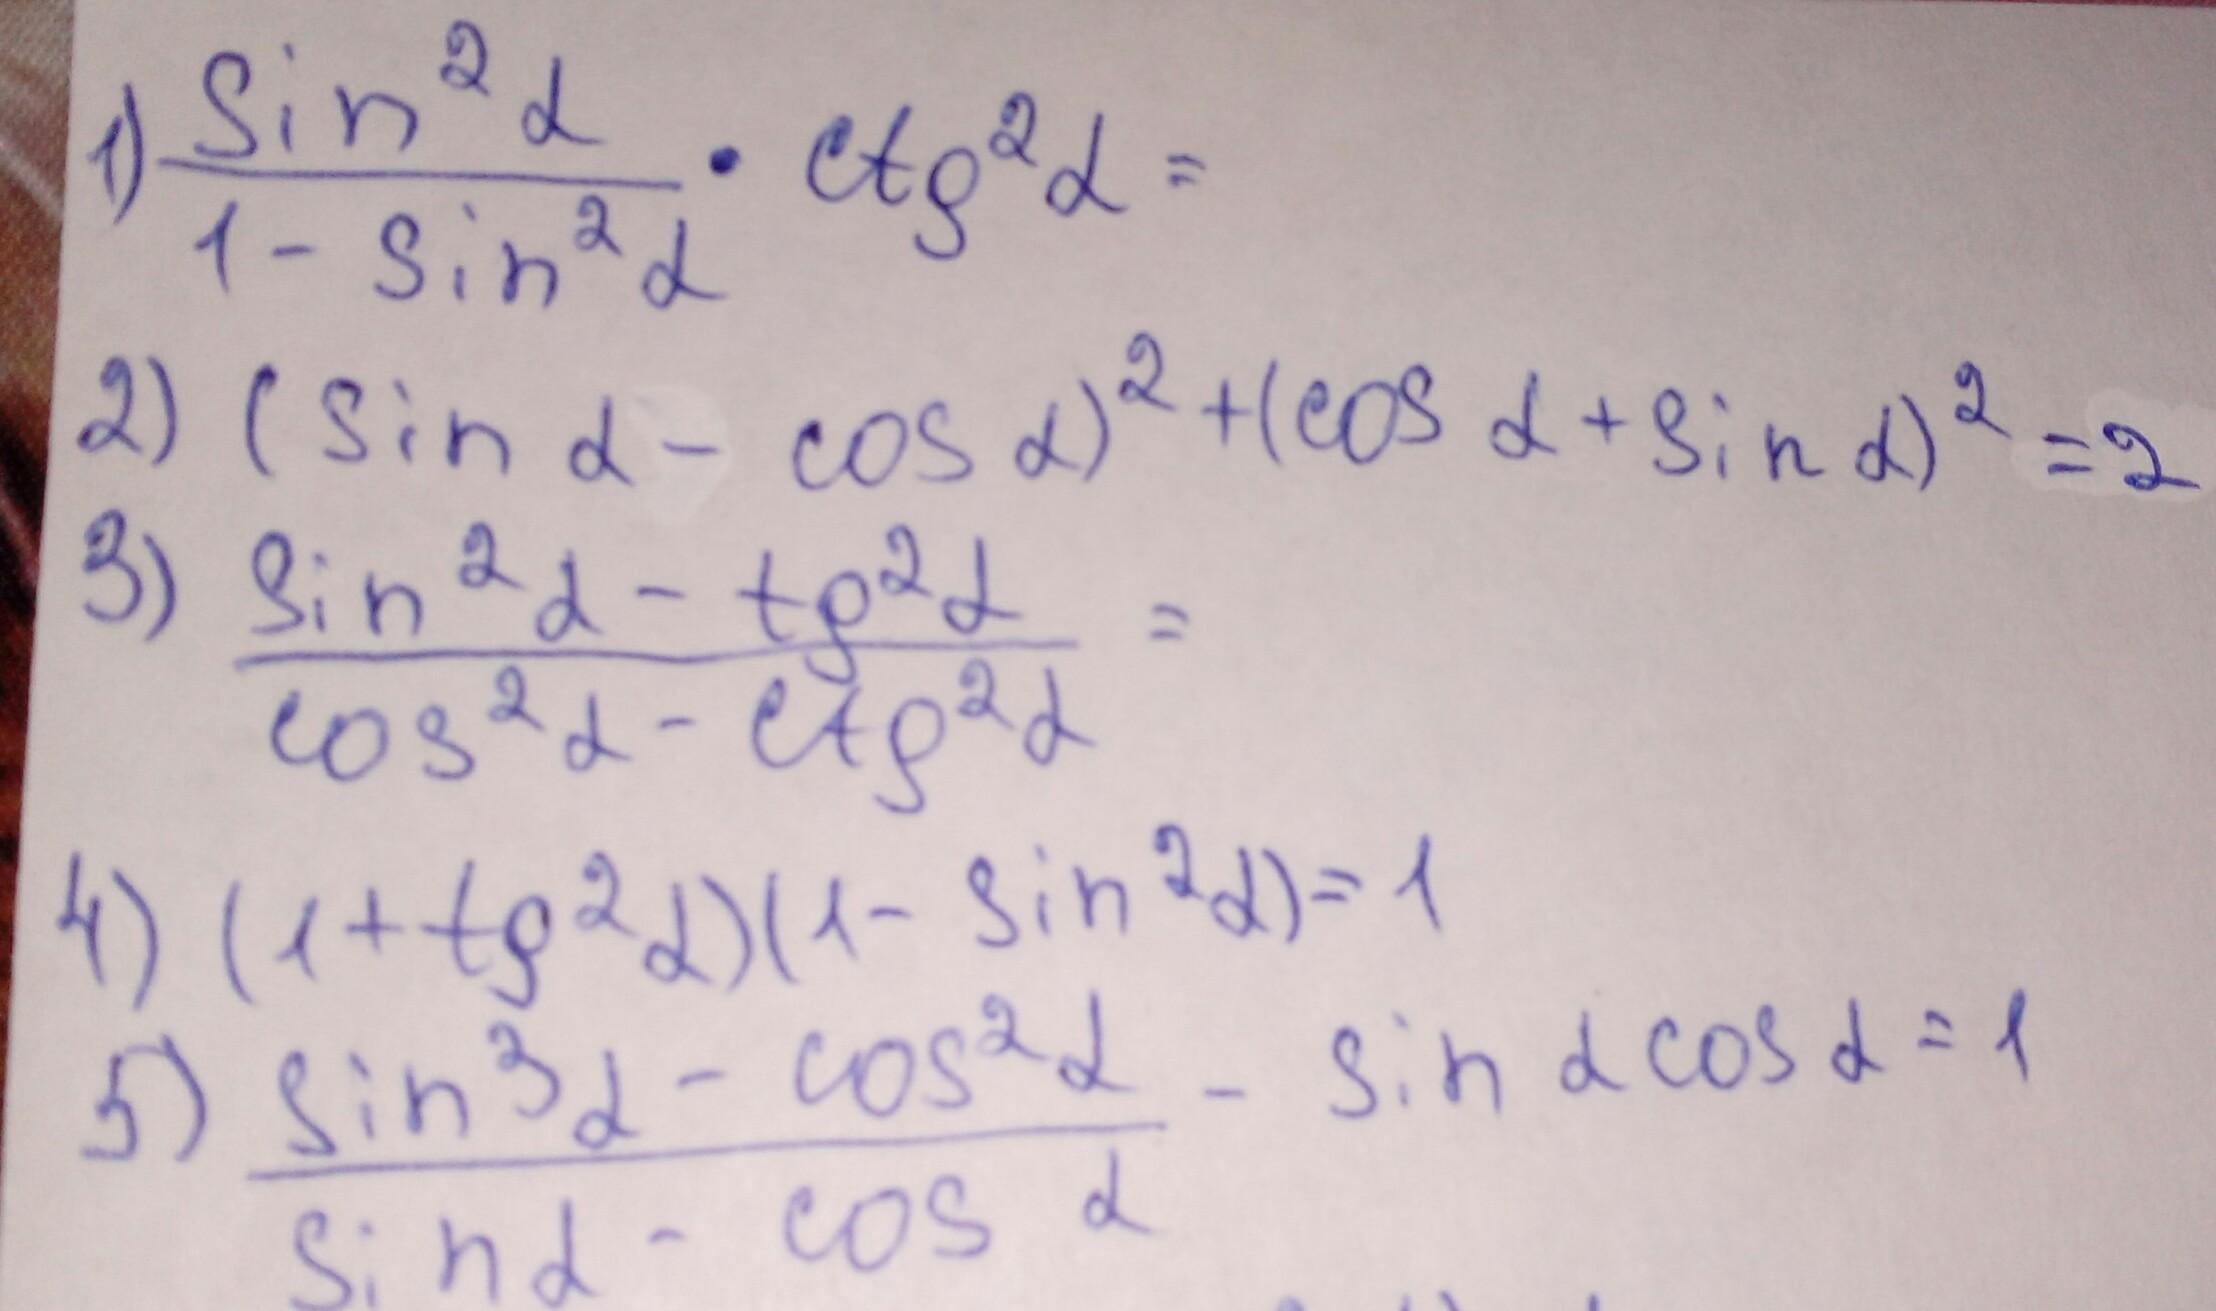 1) sin²α / (1 - sin²α) · ctg²α =
2) (sin α - cos α)² + (cos α + sin α)² = 2
3) (sin²α - tg²α) / (cos²α - ctg²α) =
4) (1 + tg²α)(1 - sin²α) = 1
5) (sin³α - cos²α) / (sin α - cos α) - sin α cos α = 1